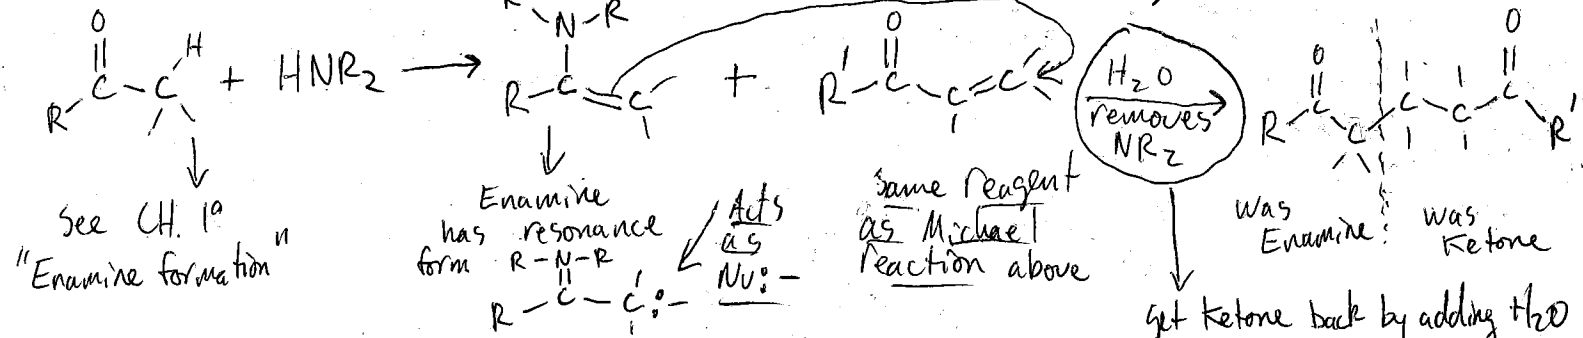 O
C
C
H
R
+ HNR2 →
R N-R
R-C=C
+
O
R'
C
C=C
H2O
removes
NR2
O
R C
C
C
C
C
O
R'
See CH. 19
"Enamine formation"
Enamine
has resonance
form
R-N-R
R-C-C:-
Acts
as
Nu:-
Same reagent
as Michael
reaction above
was
Enamine
was
Ketone
get ketone back by adding H2O